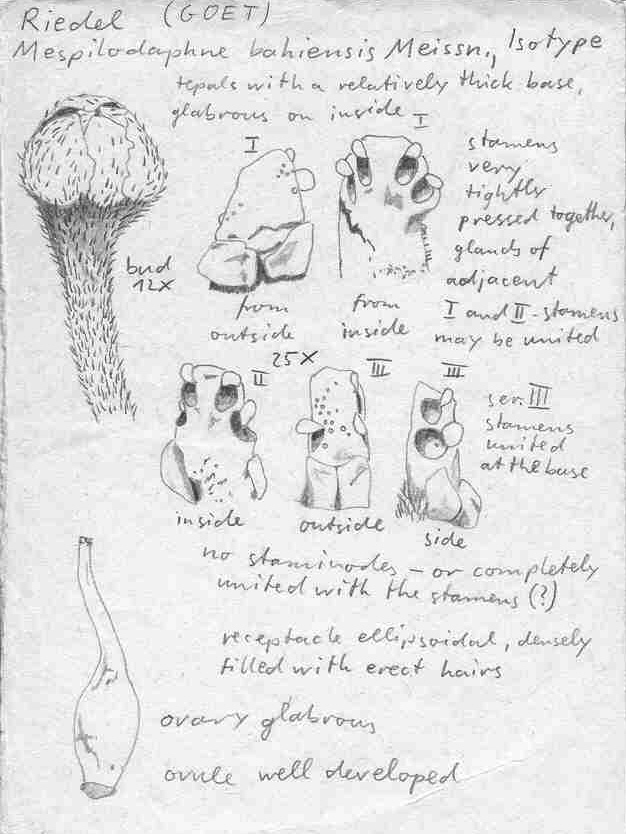 Riedel (GOET)
Mespilodaphne bahiensis Meissn., Isotype
tepals with a relatively thick base,
glabrous on inside
I
I
stamens
very
tightly
pressed together,
glands of
adjacent
I and II-stamens
may be united
bud
12x
from
outside
from
inside
25x
II
III
III
ser. III
stamens
united
at the base
inside
outside
side
no staminodes – or completely
united with the stamens (?)
receptacle ellipsoidal, densely
filled with erect hairs
ovary glabrous
ovule well developed